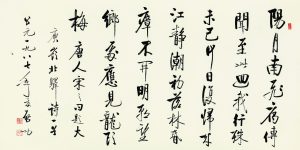 陽月南飛雁傳
聞至此回我行殊
未已何日復歸來
江靜潮初落林昏
瘴不開明朝望
鄉處應見隴頭
梅 唐人宋之问題大
庾嶺北驛詩一首
公元一九八七年